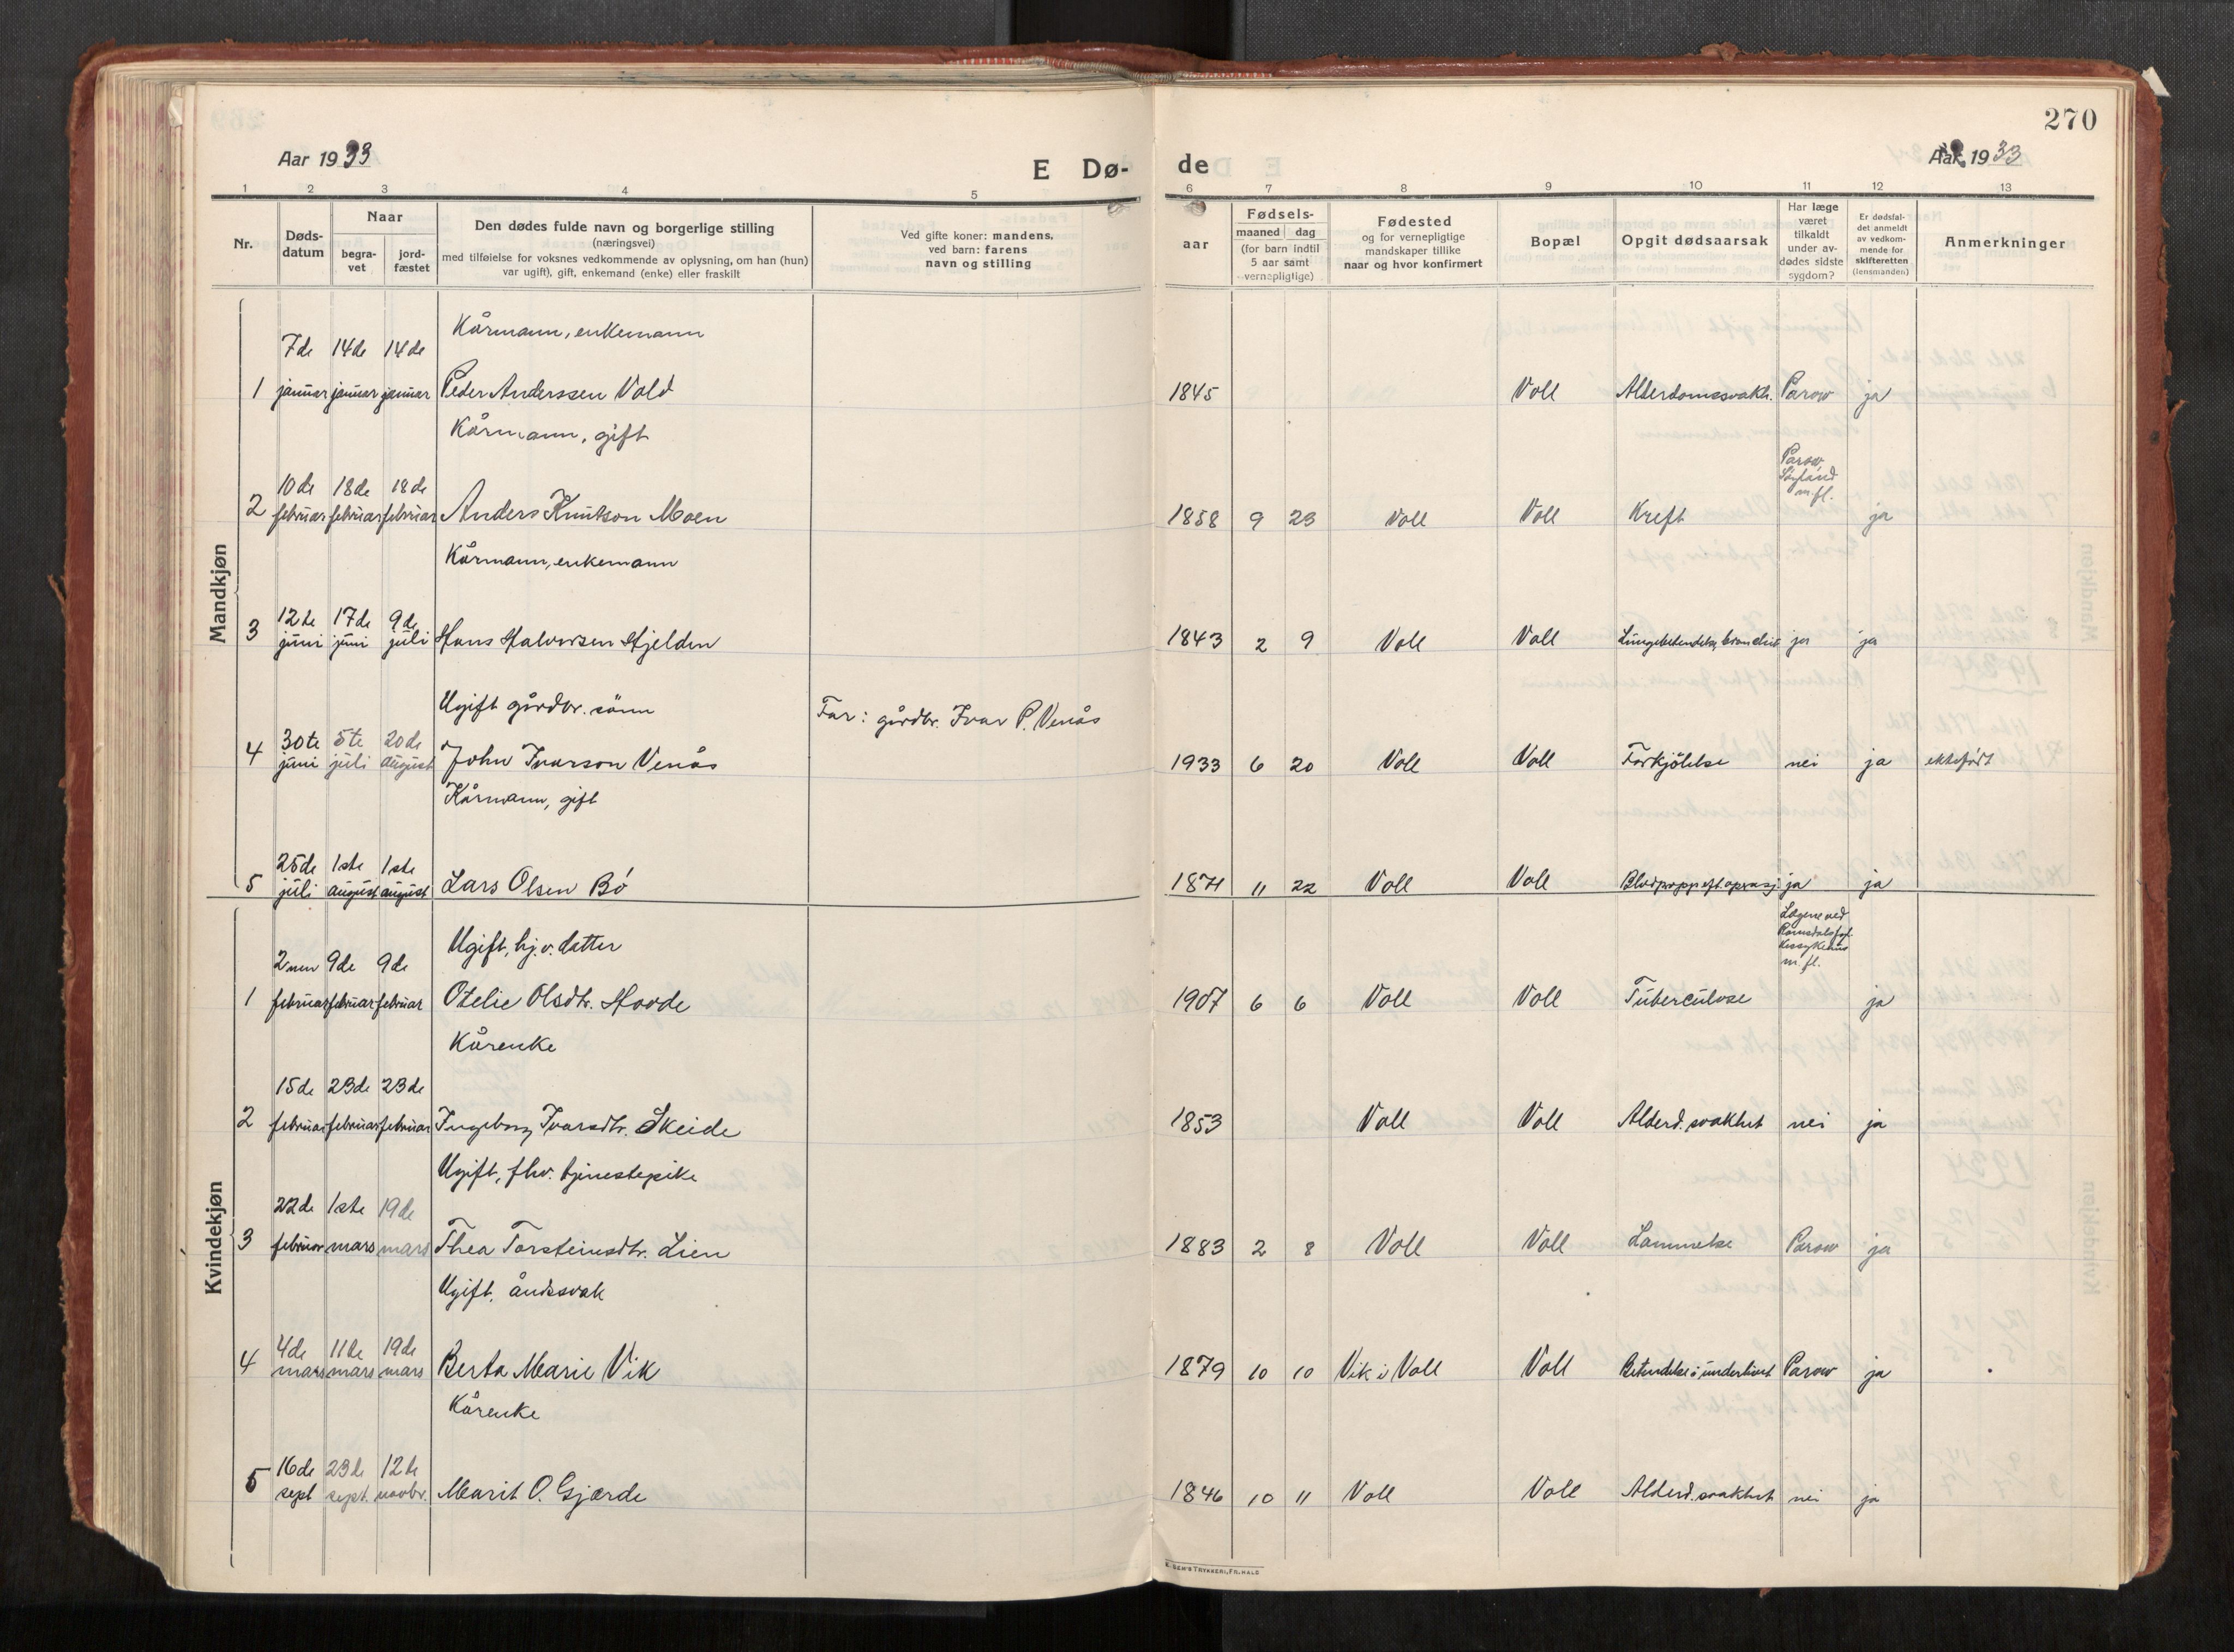 270
Aar 1933
E Dø-
de
Aar 1933
1 2 3 4 5 6 7 8 9 10 11 12 13
Nr.
Døds-
datum
Naar
begra-
vet
jord-
fæstet
Den dødes fulde navn og borgerlige stilling
(næringsvei)
med tilføielse for voksnes vedkommende av oplysning, om han (hun)
var ugift), gift, enkemand (enke) eller fraskilt
Ved gifte koner: mandens,
ved barn: farens
navn og stilling
aar
Fødsels-
maaned dag
(for barn indtil
5 aar samt
vernepligtige)
Fødested
og for vernepligtige
mandskaper tillike
naar og hvor konfirmert
Bopæl
Opgit dødsaarsak
Har læge
været
tilkaldt
under av-
dødes sidste
sygdom?
Er dødsfal-
det anmeldt
av vedkom-
mende for
skifteretten
(lensmanden)
Anmerkninger
Mandkjøn
Kårmann, enkemann
7de 14de 14de
1 januar januar januar Peder Anderssen Vold 1845 Voll Alderdomssvakh. Parow ja
Kårmann, gift
Parow,
m. fl.
10de 18de 18de
2 februar februar februar Anders Knutson Moen 1858 9 23 Voll Voll Kreft ja
Kårmann, enkemann
12te 17de 9de
3 juni juni juli Hans Halvorsen Hjelden 1843 2 9 Voll Voll Lungebetendelse, bronchit ja ja
Ugift gårdbr. sønn Far: gårdbr. Ivar P. Venås
30te 5te 20de
4 juni juli august John Ivarson Venås 1933 6 20 Voll Voll Forkjölelse nei ja ektefødt
Kårmann, gift
25de 1ste 1ste
5 juli august august Lars Olsen Bö 1871 11 22 Voll Voll Blodpropp eft. operasj. ja ja
Kvindekjøn
Ugift, hj. v. datter
Lægene ved
Romsdals fyl-
kessykehus
m. fl.
2nen 9de 9de
1 februar februar februar Otelie Olsdtr. Hovde 1907 6 6 Voll Voll Tuberculose ja
Kårenke
15de 23de 23de
2 februar februar februar Ingeborg Ivarsdtr. Skeide 1853 Voll Voll Alderd. svakhet nei ja
Ugift, fhv. tjenestepike
22de 1ste 19de
3 februar mars mars Thea Torsteinsdtr. Lien 1883 2 8 Voll Voll Lammelse Parow ja
Ugift, åndssvak
4de 11te 19de
4 mars mars mars Berta Marie Vik 1879 10 10 Vik i Voll Voll Betendelse i underlivet Parow ja
Kårenke
16de 23de 12te
5 sept sept. novbr. Marit O. Gjærde 1846 10 11 Voll Voll Alderd. svakhet nei ja
E. SEM'S TRYKKERI, FR.HALD